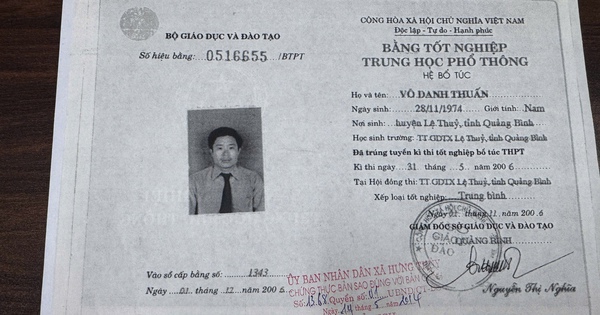 BỘ GIÁO DỤC VÀ ĐÀO TẠO
Số hiệu bằng: 0516655 /BTPT
CỘNG HÒA XÃ HỘI CHỦ NGHĨA VIỆT NAM
Độc lập - Tự do - Hạnh phúc
BẰNG TỐT NGHIỆP
TRUNG HỌC PHỔ THÔNG
HỆ BỔ TÚC
Họ và tên: VÕ DANH THUẤN
Ngày sinh: 28/11/1974 Giới tính: Nam
Nơi sinh: huyện Lệ Thuỷ, tỉnh Quảng Bình
Học sinh trường: TT GDTX Lệ Thuỷ, tỉnh Quảng Bình
Đã trúng tuyển kì thi tốt nghiệp bổ túc THPT
Kì thi ngày 31 tháng 5 năm 2006
Tại Hội đồng thi: TT GDTX Lệ Thuỷ, tỉnh Quảng Bình
Xếp loại tốt nghiệp: Trung bình
Ngày 01 tháng 11 năm 2006
GIÁM ĐỐC SỞ GIÁO DỤC VÀ ĐÀO TẠO
QUẢNG BÌNH
GIÁO
ĐÀO
Nguyễn Thị Nghĩa
Vào sổ cấp bằng số: 1343
Ngày 01 tháng 12 năm 2006
ỦY BAN NHÂN DÂN XÃ HƯNG
CHỨNG THỰC BẢN SAO ĐÚNG VỚI BẢN
Số: 1368 Quyển số: 01
Ngày 14 tháng 5 năm 2014